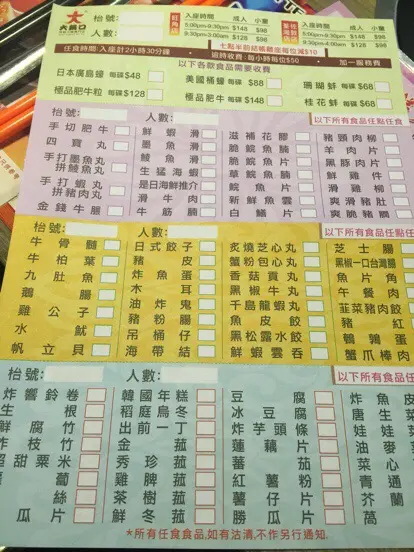 大龍口
枱號:
人數:
旺角店
入座時間 成人 小童
5:00pm-9:30pm $148 $98
9:30pm-3:00am $128 $98
荃灣店
入座時間 成人 小童
任食時間:入座計2小時30分鐘
七點半前結帳離座每位減$10
逾時收費:每小時每位$50
加一服務費
以下各款食品需要收費
日本廣島蠔 每碟$48
美國桶蠔 每碟$88
珊瑚蚌 每碟$68
極品肥牛粒 每碟$128
極品肥牛 每碟$148
桂花蚌 每碟$68
枱號:
人數:
以下所有食品任點任食
手切肥牛
鮮蝦滑
滋補花膠
豬頸肉柳
四寶丸
墨魚滑
脆鯇魚腩
羊肉片
手打墨魚丸拼鯪魚丸
鯪魚滑
脆鯇魚片
黑豚肉片
生猛海蝦
草鯇魚腩
鮮雞件
手打蝦丸拼豬肉丸
是日海鮮推介
鯇魚片
滑雞柳
滑牛肉
新鮮魚雲
爽滑豬肚
金錢牛𦟌
牛筋腩
白鱔片
爽脆豬腰
枱號:
人數:
以下所有食品任點任
牛骨髓
日式餃子
炙燒芝心丸
芝士腸
牛柏葉
豬皮
蟹粉包心丸
黑椒一口台灣腸
九肚魚
炸魚蛋
香菇貢丸
魚片角
鵝腸
木耳
黑椒牛丸
午餐肉
雞公子
油炸鬼
千島龍蝦丸
韮菜豬肉餃
水魷
豬粉腸
魚皮餃
豬紅
魚卜
吊桶仔
黑松露餃
鵪鶉蛋
帆立貝
海帶結
鮮蝦雲吞
蟹爪棒
枱號:
人數:
以下所有食品任
炸響鈴卷
韓國年糕
豆腐
炸魚皮
生根
稻庭烏冬
冰豆腐
唐生菜
鮮腐竹
前一丁
炸芋頭條
娃娃菜
炸枝竹
出菇
蓮藕片
油麥菜
甜粟米
金菇
蕃茄
菜心
秀珍菇
粉絲
雞髀菇
紅薯粉
通菜
蘿蔔
茶樹菇
薯仔片
青芥蘭
冬瓜片
鮮菇
勝瓜
萵
*所有任食食品,如有沽清,不作另行通知.